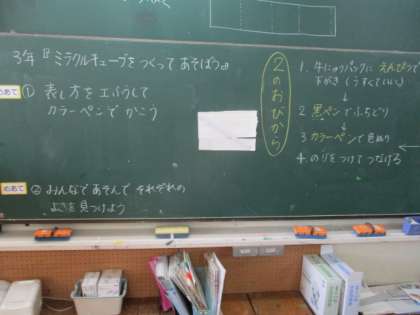 3年『ミラクルキューブをつくって あそぼう』
めあて ① 表し方を工夫して
カラーペンで かこう
めあて ② みんなであそんで それぞれの
よさを見つけよう
2のおびから
1. 牛にゅうパックに えんぴつで
下がき(うすくていい)
2 黒ペンでふちどり
3 カラーペンで 色ぬり
4 のりをつけて つなげる